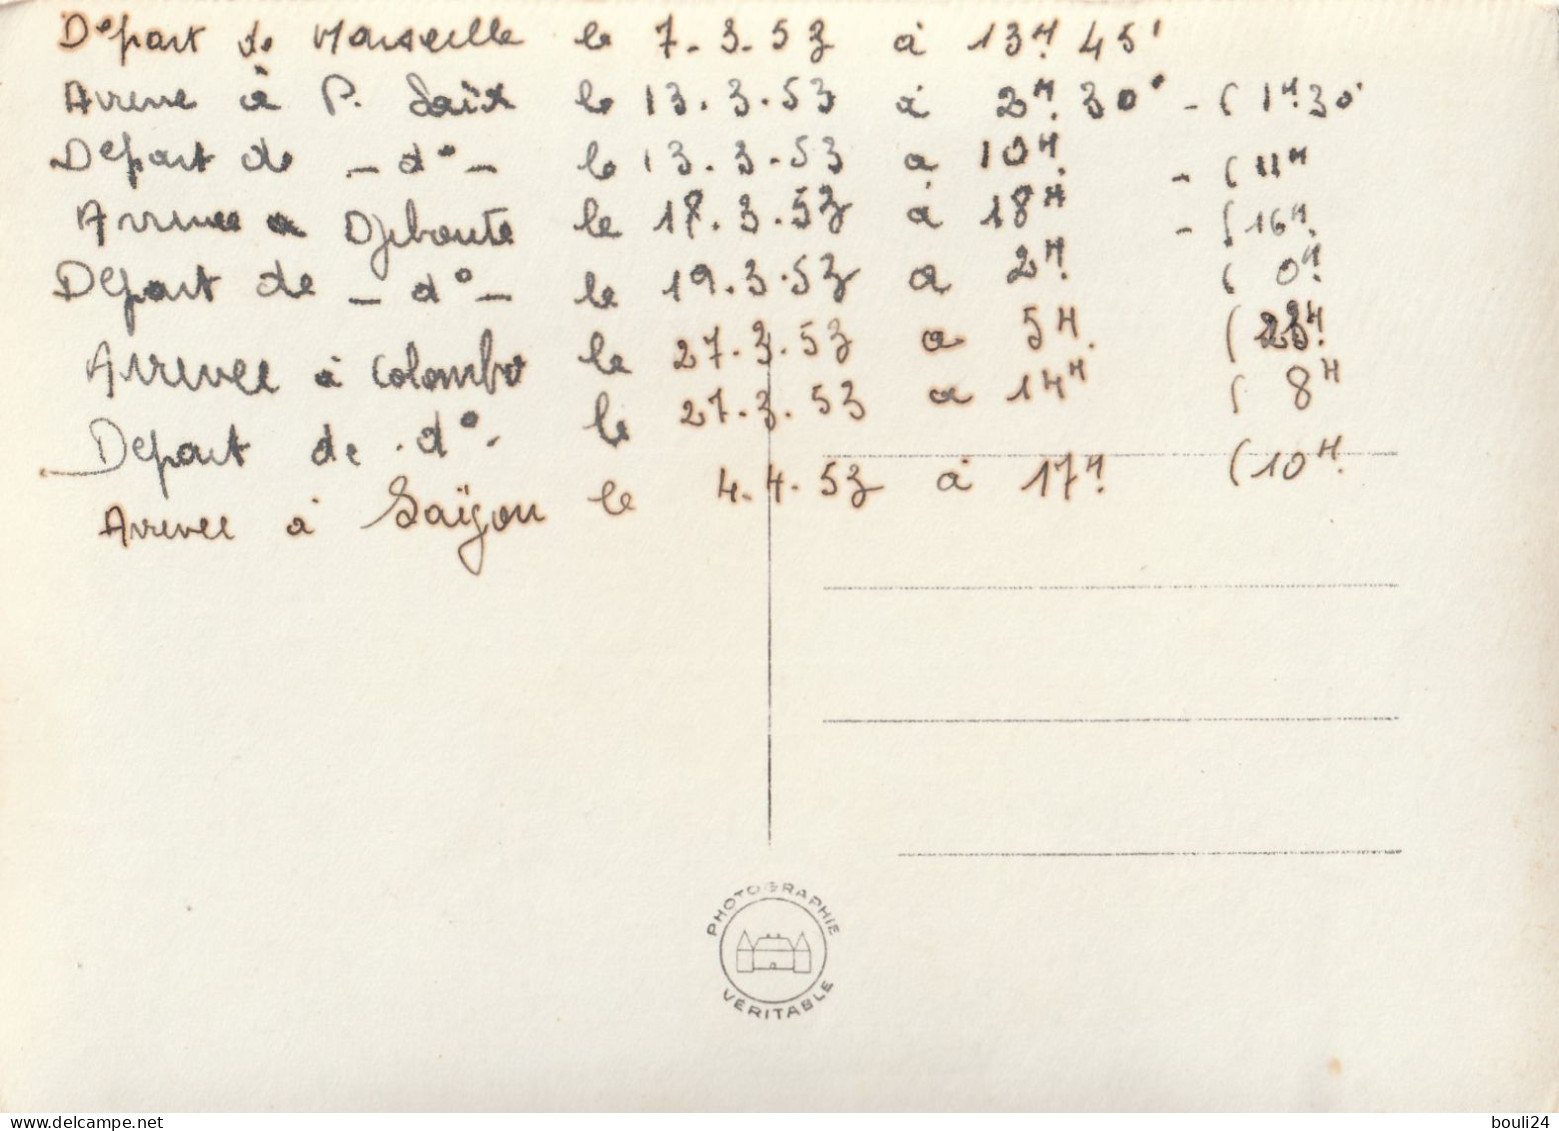 Départ de Marseille le 7.3.53 à 13H. 45'
Arrivée à P. Saïd le 13.3.53 à 2H. 30' - (1H.30'
Départ de - d° - le 13.3.53 à 10H. - (11H
Arrivée à Djiboute le 18.3.53 à 18H - (16H.
Départ de - d° - le 19.3.53 à 2H. (0H.
Arrivée à Colombo le 27.3.53 à 5H. (23H.
Départ de - d° - le 27.3.53 à 14H (8H
Arrivée à Saïgon le 4.4.53 à 17H. (10H.
PHOTOGRAPHIE
VÉRITABLE
delcampe.net
bouli24